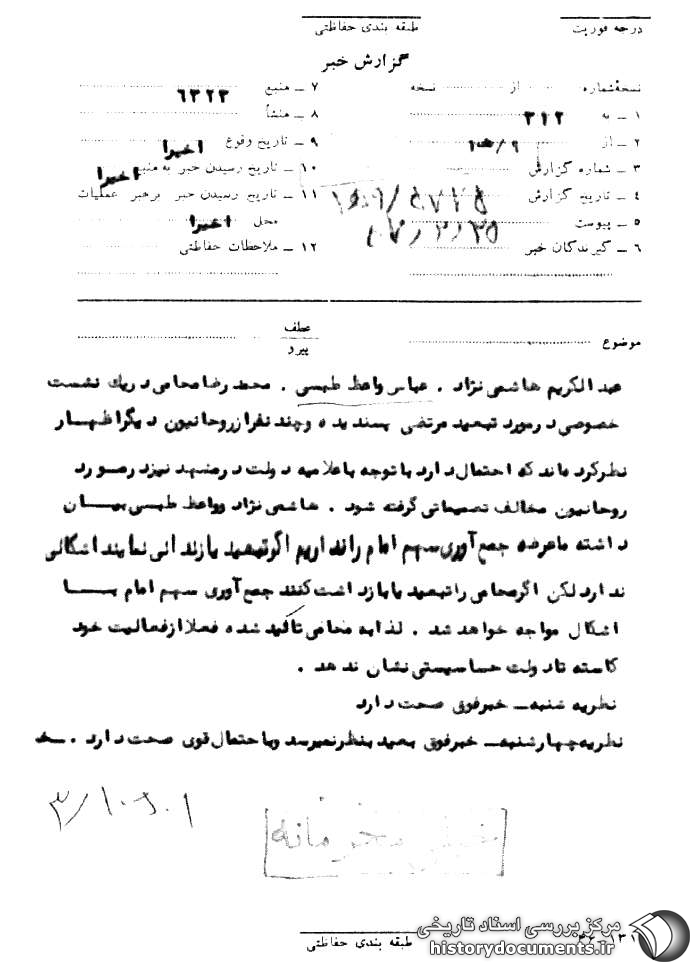 درجه فوریت
طبقه بندی حفاظتی
گزارش خبر
نسخهٔ شماره از نسخه
۱ ـ به ۳۱۲
۲ ـ از ۹/ه۱
۳ ـ شماره گزارش
۴ ـ تاریخ گزارش
۵ ـ پیوست
۶ ـ گیرندگان خبر
۷ ـ منبع ۶۳۲۳
۸ ـ منشأ
۹ ـ تاریخ وقوع اخیرا
۱۰ ـ تاریخ رسیدن خبر به منبع اخیرا
۱۱ ـ تاریخ رسیدن خبر برهبر عملیات
محل اخیرا
۱۲ ـ ملاحظات حفاظتی
موضوع
عطف
پیرو
عبدالکریم هاشمی نژاد . عباس واعظ طبسی . محمد رضا محامی در یک نشست
خصوصی در مورد تبعید مرتضی پسندیده و چند نفر از روحانیون دیگر اظهار
نظر کرده اند که احتمال دارد با توجه باعلامیه دولت در مشهد نیز در مورد
روحانیون مخالف تصمیماتی گرفته شود . هاشمی نژاد و واعظ طبسی بیان
داشته ما عرضه جمع آوری سهم امام را نداریم اگر تبعید یا زندانی نمایند اشکالی
ندارد لکن اگر محامی را تبعید یا بازداشت کنند جمع آوری سهم امام با
اشکال مواجه خواهد شد . لذا به محامی تاکید شده فعلا از فعالیت خود
کاسته تا دولت حساسیستی نشان ندهد .
نظریه شنبه ـ خبر فوق صحت دارد
نظریه چهارشنبه ـ خبر فوق بعید بنظر نمیرسد و با احتمال قوی صحت دارد .
خیلی محرمانه
طبقه بندی حفاظتی
مرکز بررسی اسناد تاریخی
historydocuments.ir